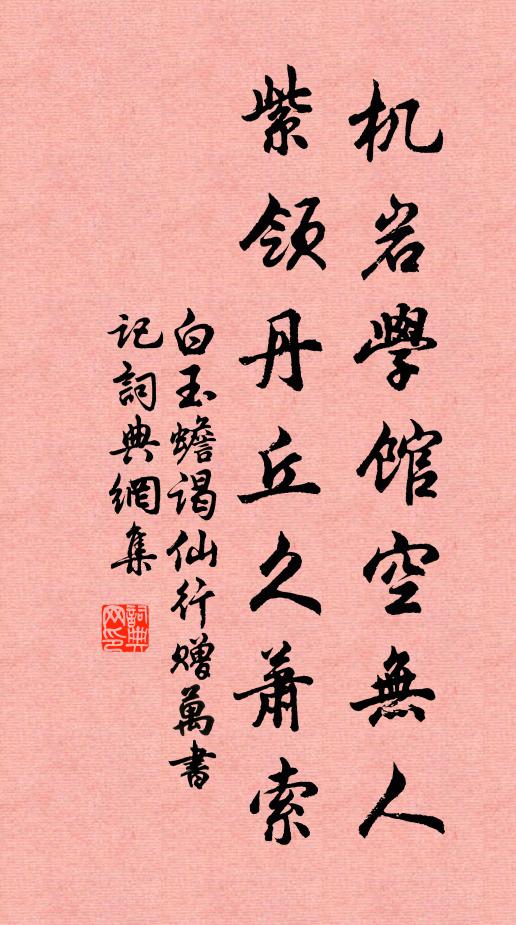 机岩學館空無人
紫領丹丘久蕭索
白玉蟾谒仙行赠萬書
記詞典網集
詞典网印